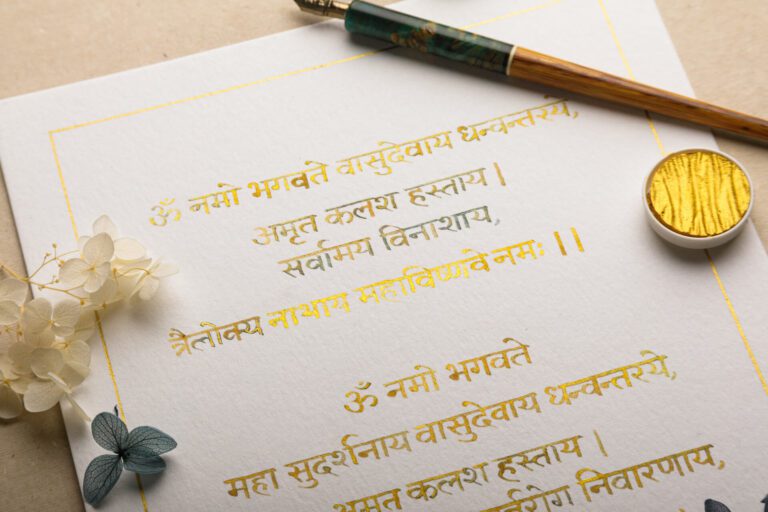 ॐ नमो भगवते वासुदेवाय धन्वन्तरये,
अमृत कलश हस्ताय |
सर्वामय विनाशाय,
त्रैलोक्य नाथाय महाविष्णवे नमः ||
ॐ नमो भगवते
महा सुदर्शनाय वासुदेवाय धन्वन्तरये,
अमृत कलश हस्ताय |
निवारणाय,